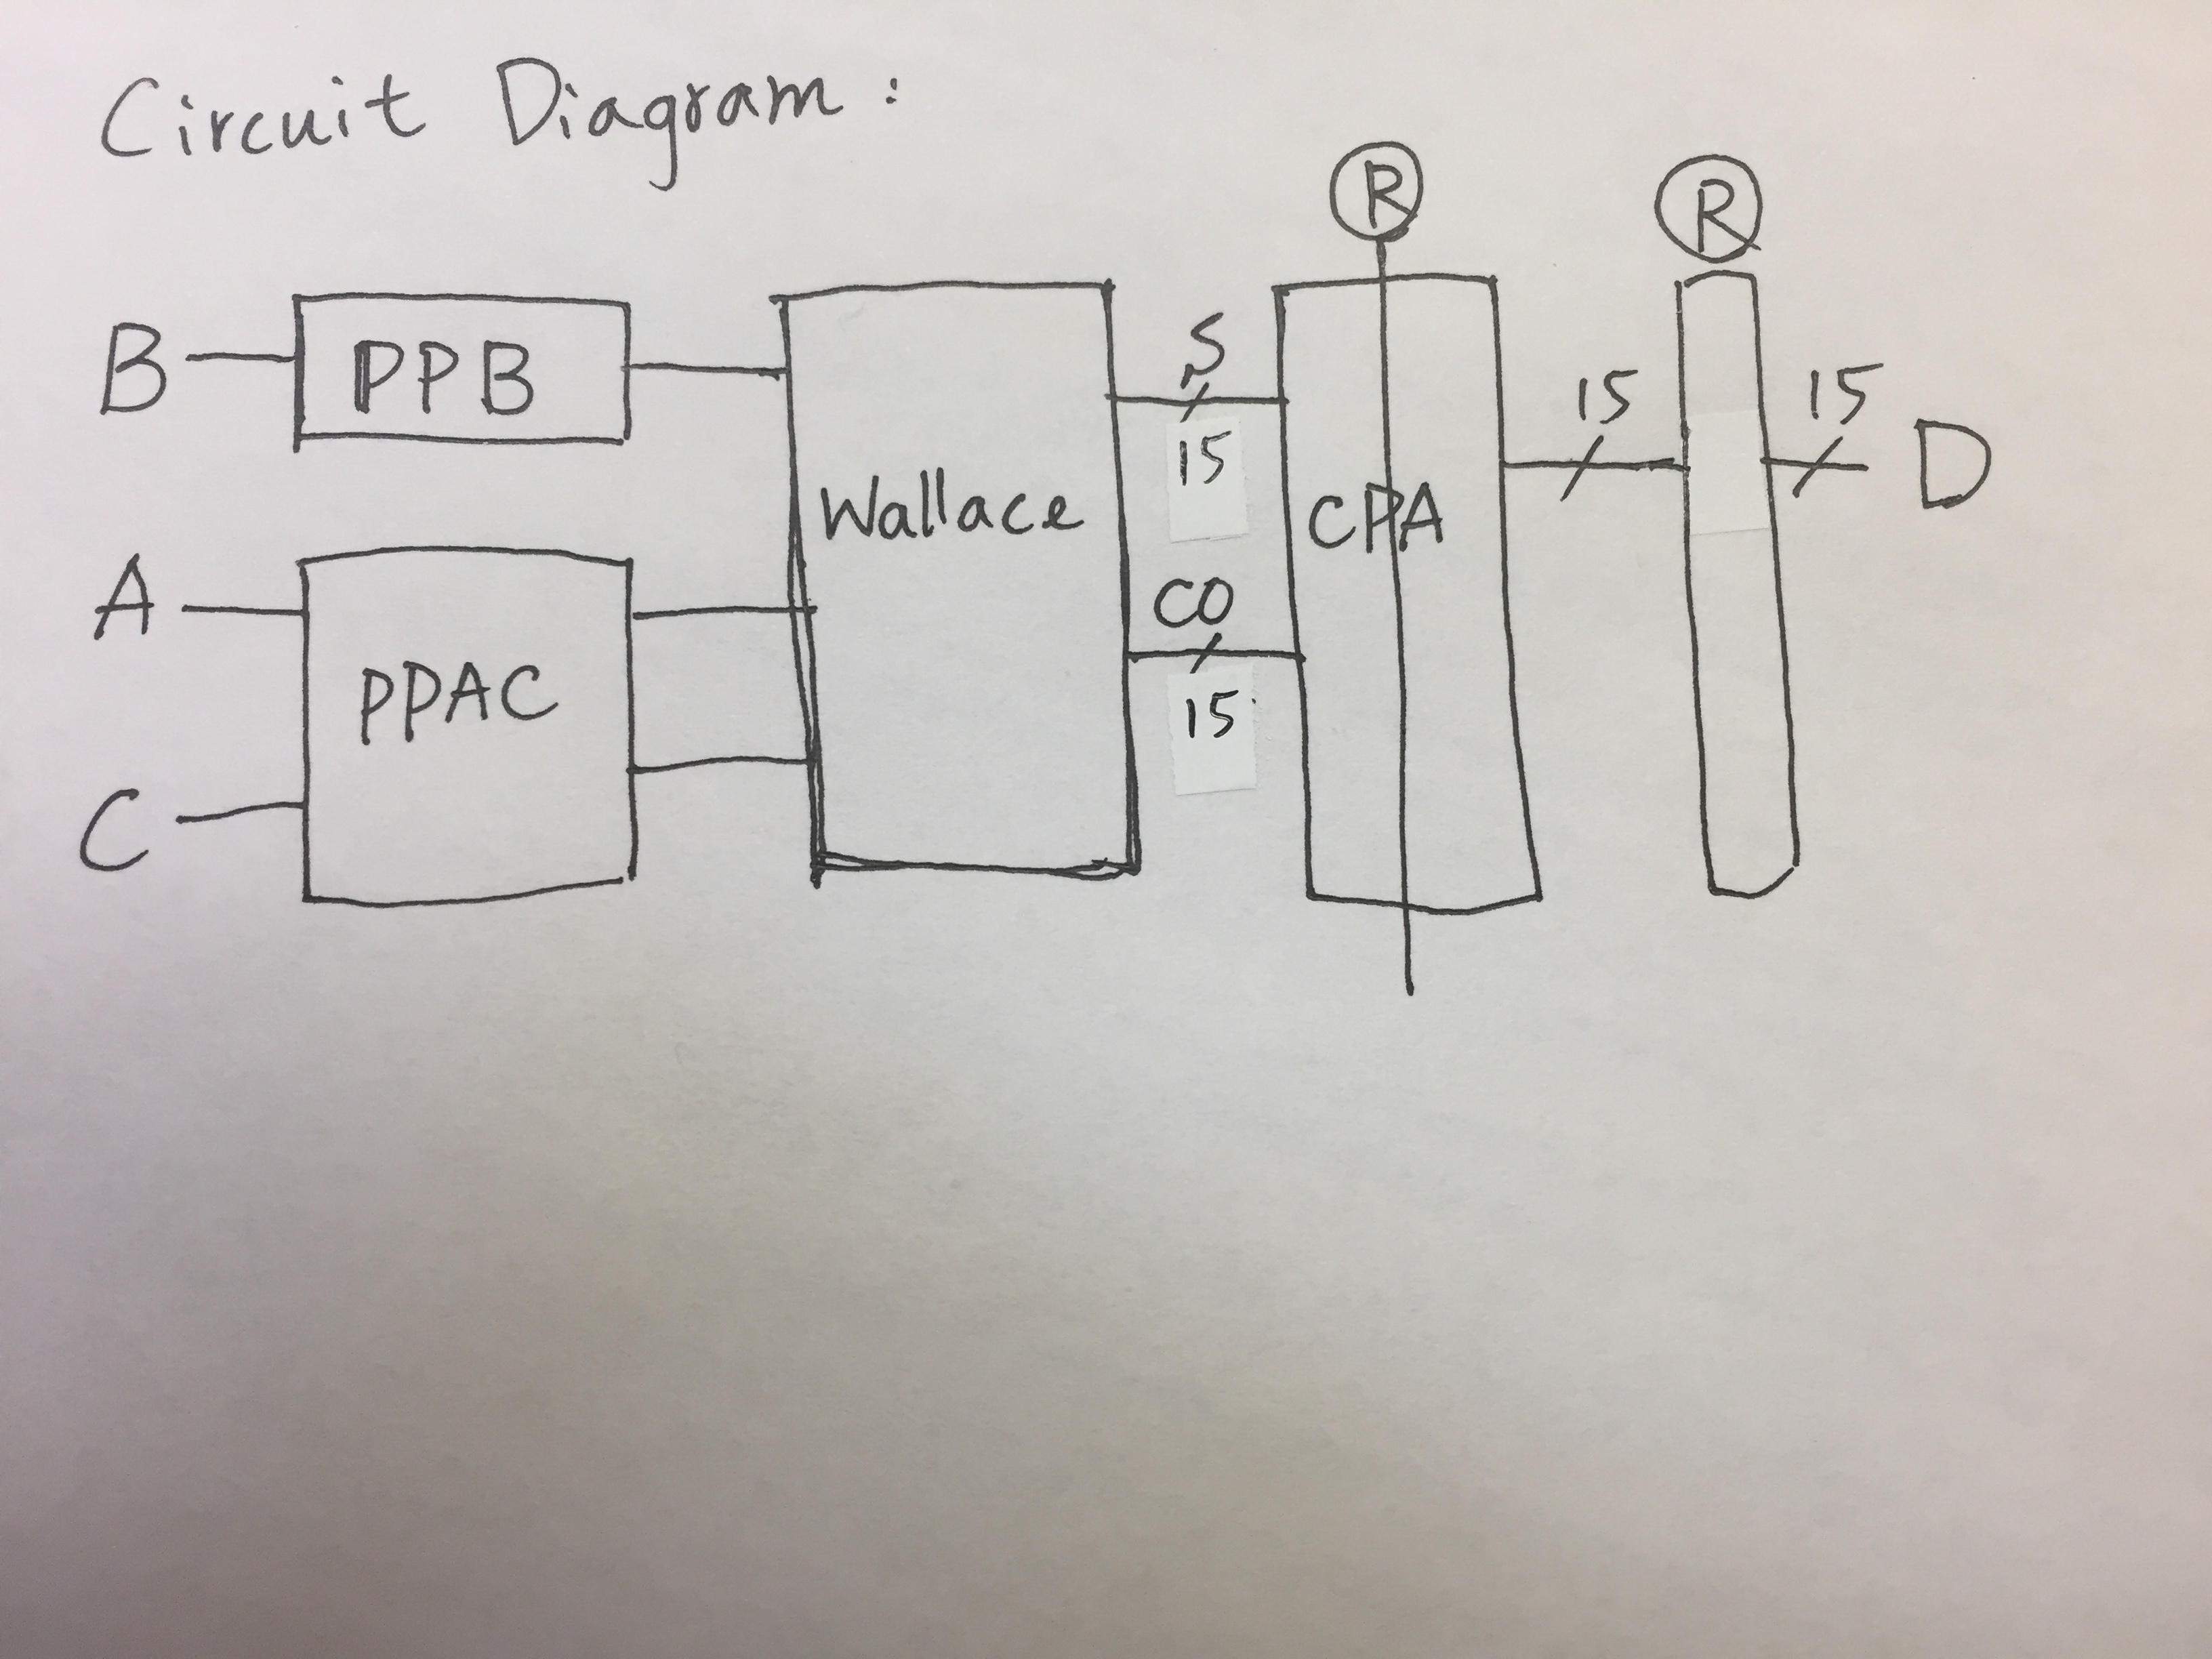 Circuit Diagram:
B
PPB
A
C
PPAC
Wallace
S
15
CO
15
CPA
R
15
R
15
D